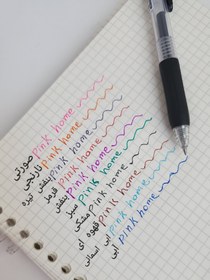 صورتی pink home
نارنجی pink home
بنفش تیره pink home
قرمز pink home
بنفش pink home
سبز pink home
مشکی pink home
قهوه ای pink home
ابی اسمانی pink home
ابی pink home